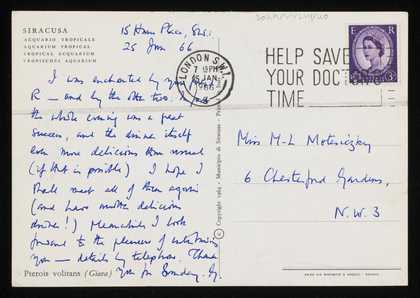 SIRACUSA
ACQUARIO TROPICALE
AQUARIUM TROPICAL
TROPICAL AQUARIUM
TROPISCHES AQUARIUM
15 Hans Place, SW1.
25 Jan 66
I was enchanted by you
R — and by the other two. In fact
the whole evening was a great
success, and the dinner itself
even more delicious than usual
(if that is possible) I hope I
shall meet all of them again
(and have another delicious
dinner!) Meanwhile I look
forward to the pleasure of entertaining
you — details by telephone. Thank
you for Sunday. G.
Pterois volitans (Giava)
© Copyright 1964 - Municipio di Siracusa
LONDON S.W.1.
PM
JAN
1966
HELP SAVE
YOUR DOCTOR'S
TIME
E R
3D
Miss M-L Motesiczky
6 Chesterford Gardens,
N.W.3